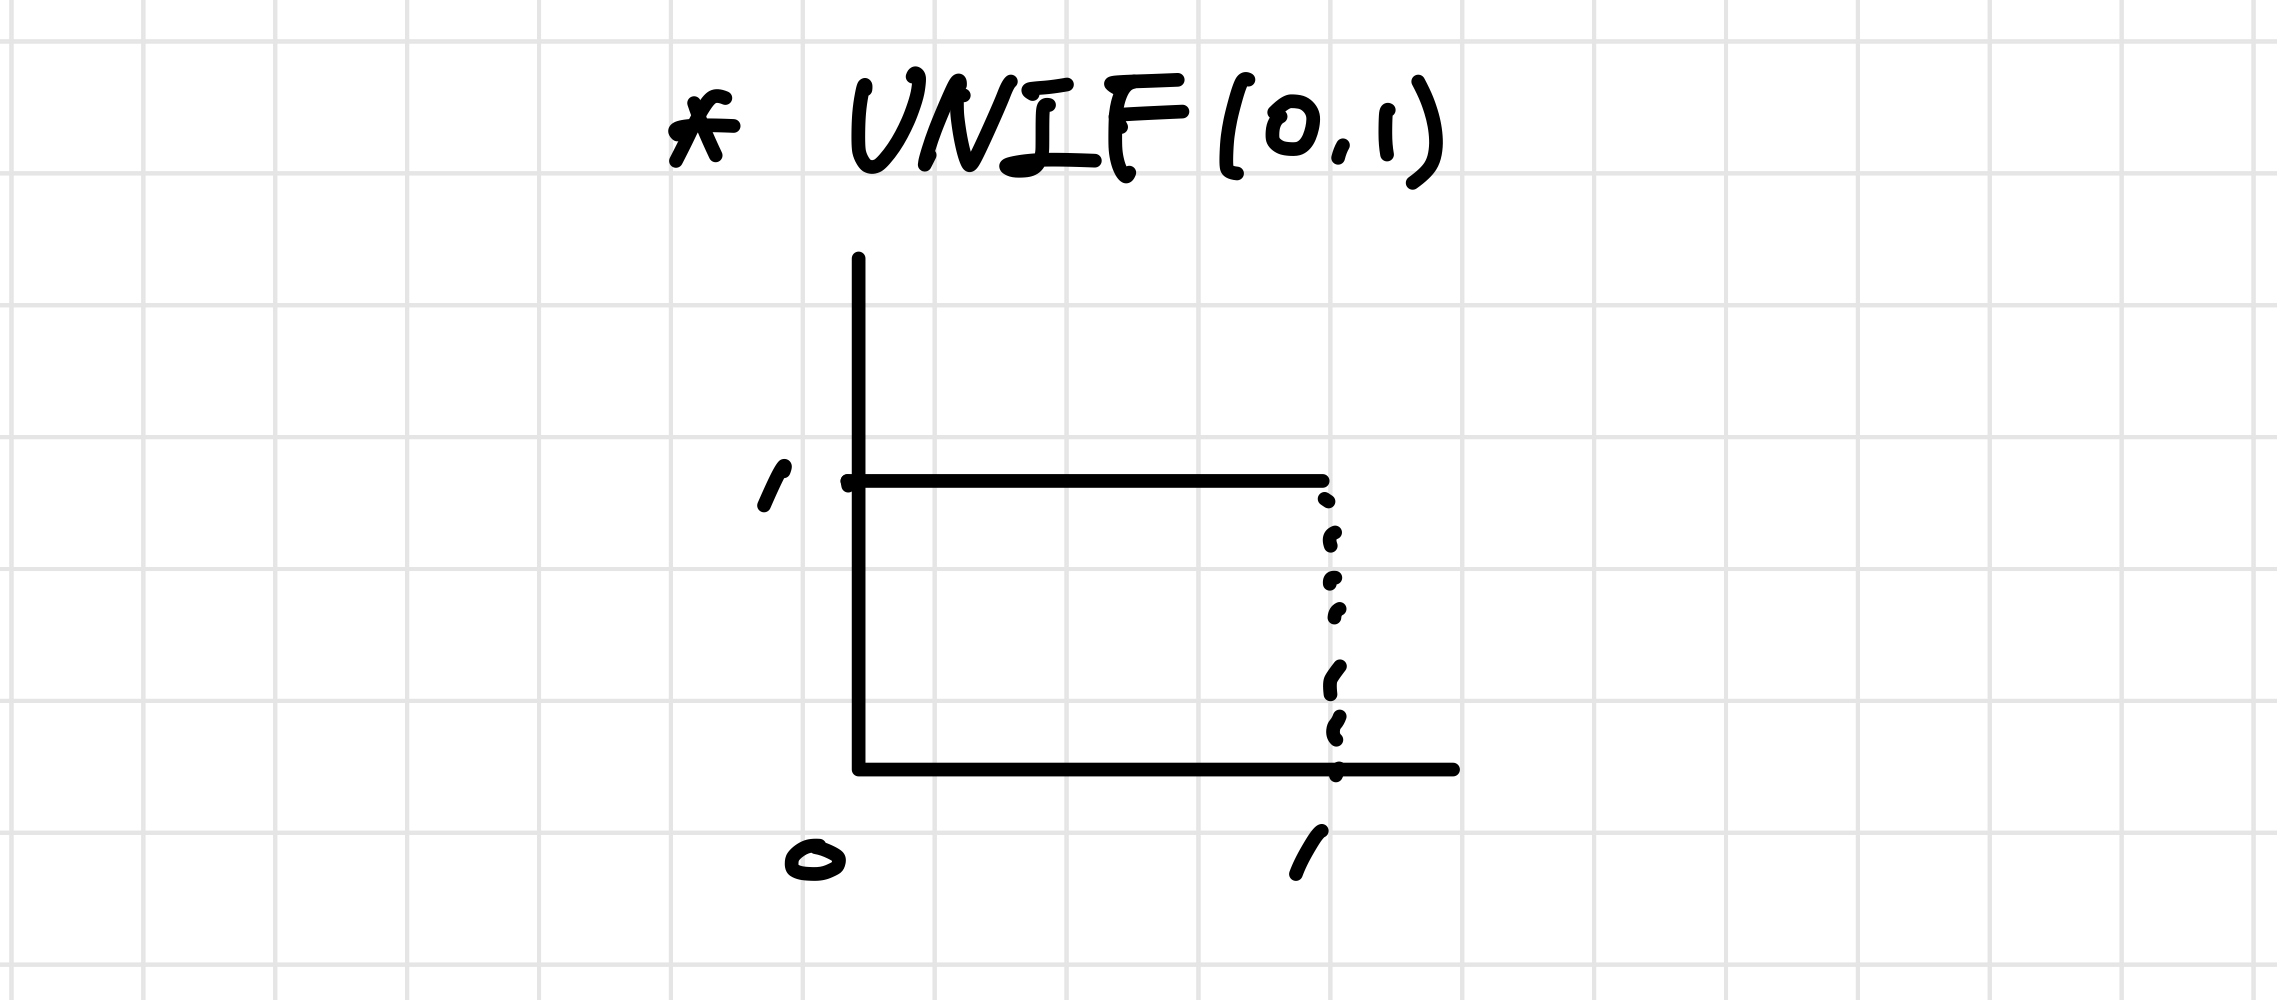 * UNIF(0,1)
1
0 1